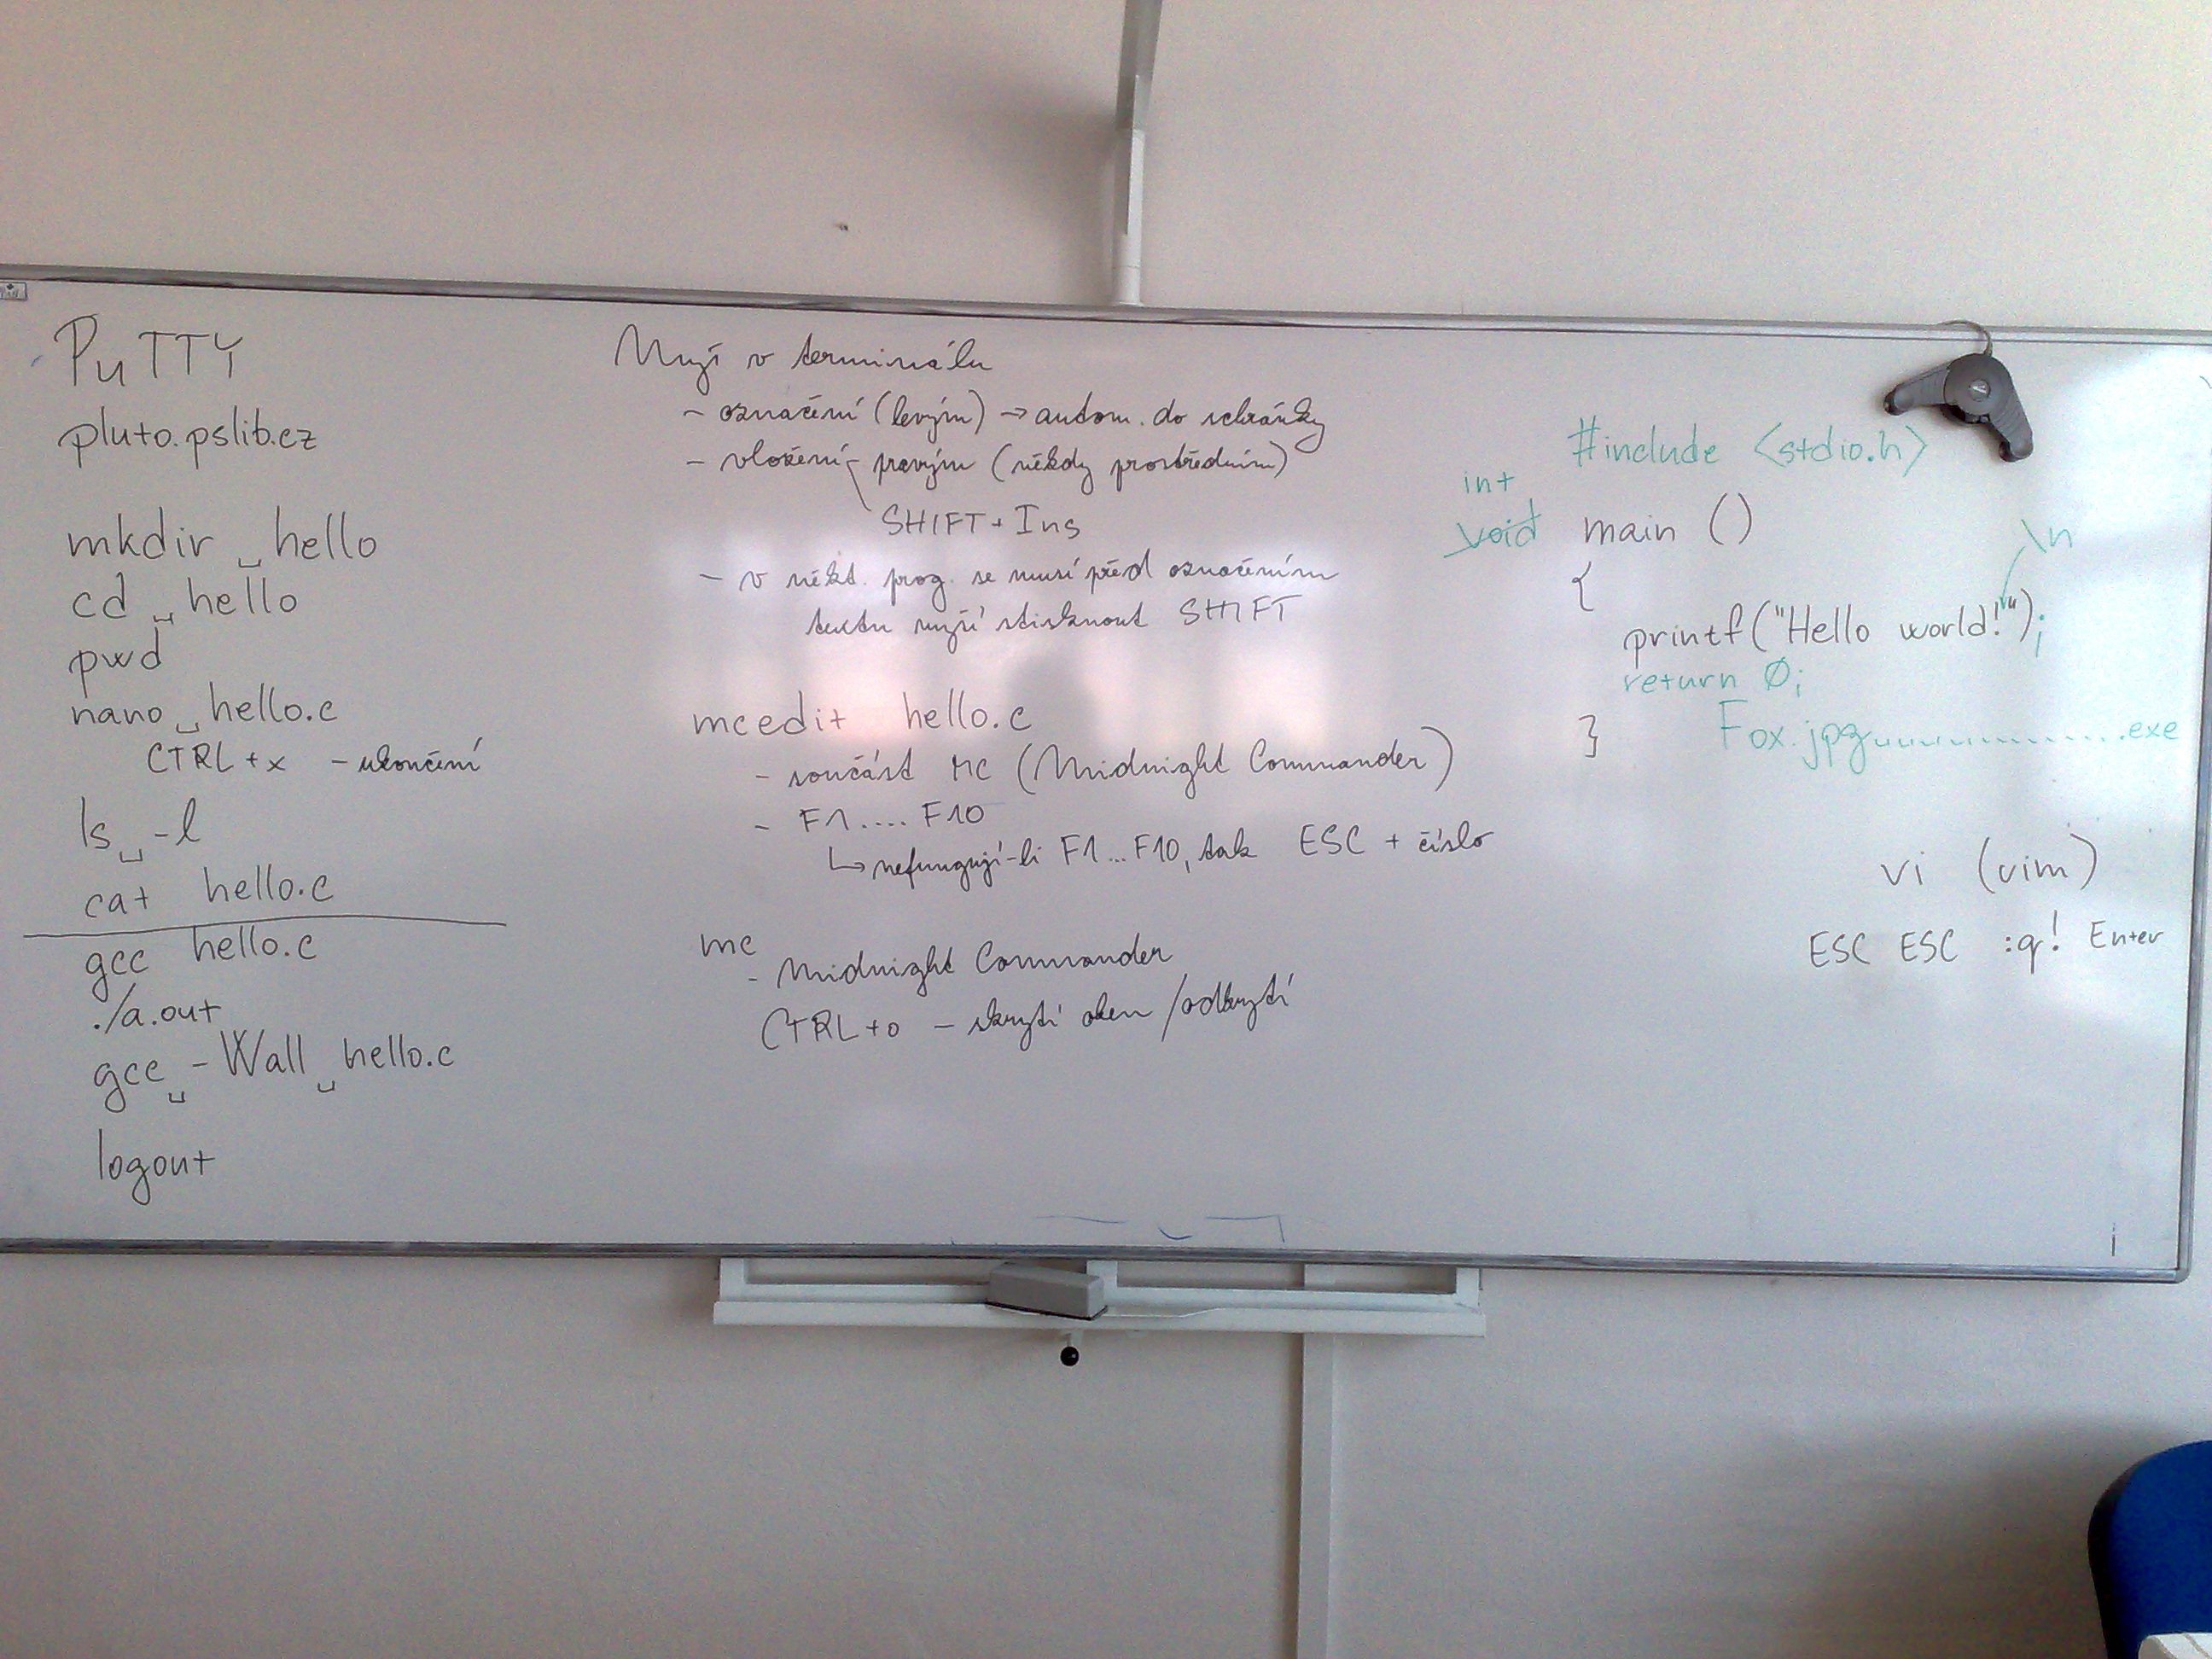 PuTTY
pluto.pslib.cz
mkdir␣hello
cd␣hello
pwd
nano␣hello.c
CTRL+x - ukončení
ls␣-l
cat hello.c
gcc hello.c
./a.out
gcc␣-Wall␣hello.c
logout
Myš v terminálu
- označení (levým) → autom. do schránky
- vložení - pravým (někdy prostředním)
SHIFT + Ins
- v někt. prog. se musí před označením
textu myší stisknout SHIFT
mcedit hello.c
- součást MC (Midnight Commander)
- F1.... F10
↳ nefungují-li F1...F10, tak ESC + číslo
mc
- Midnight Commander
CTRL+o - skrytí oken /odkrytí
#include <stdio.h>
int
void main ()
\n
{
printf("Hello world!");
return 0;
}
Fox.jpg␣␣␣␣␣␣..............exe
vi (vim)
ESC ESC :q! Enter